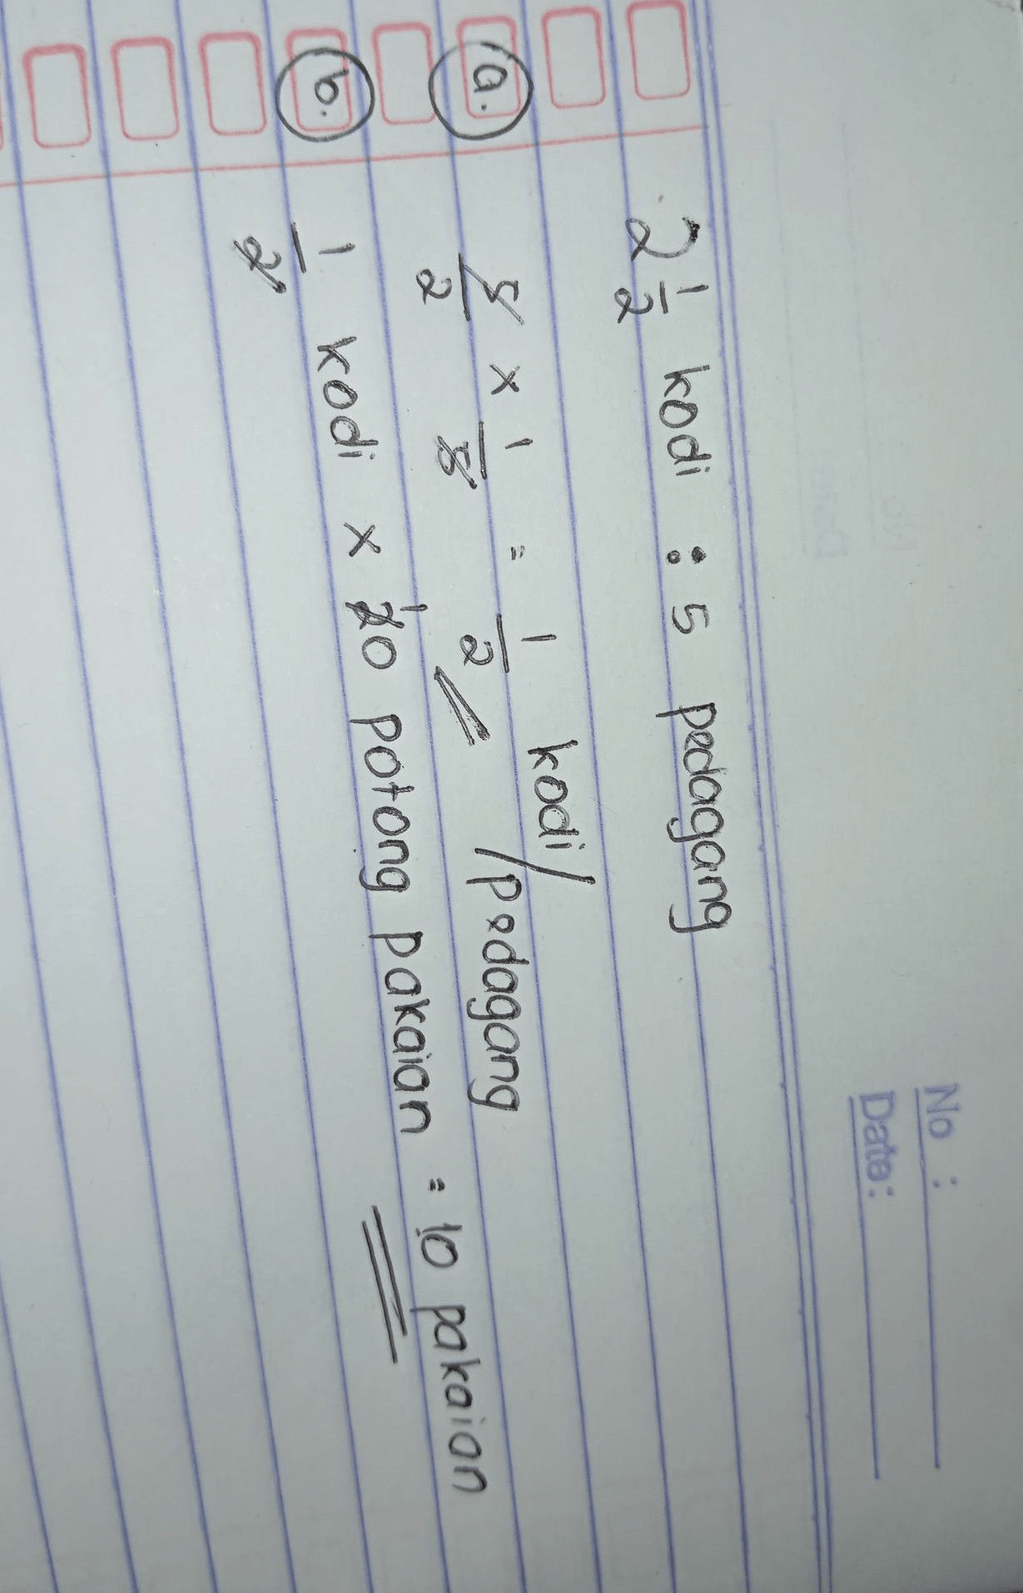 No :
Date:
2 1/2 kodi : 5 pedagang
a. 5/2 x 1/5 = 1/2 kodi/pedagang
b. 1/2 kodi x 20 potong pakaian = 10 pakaian